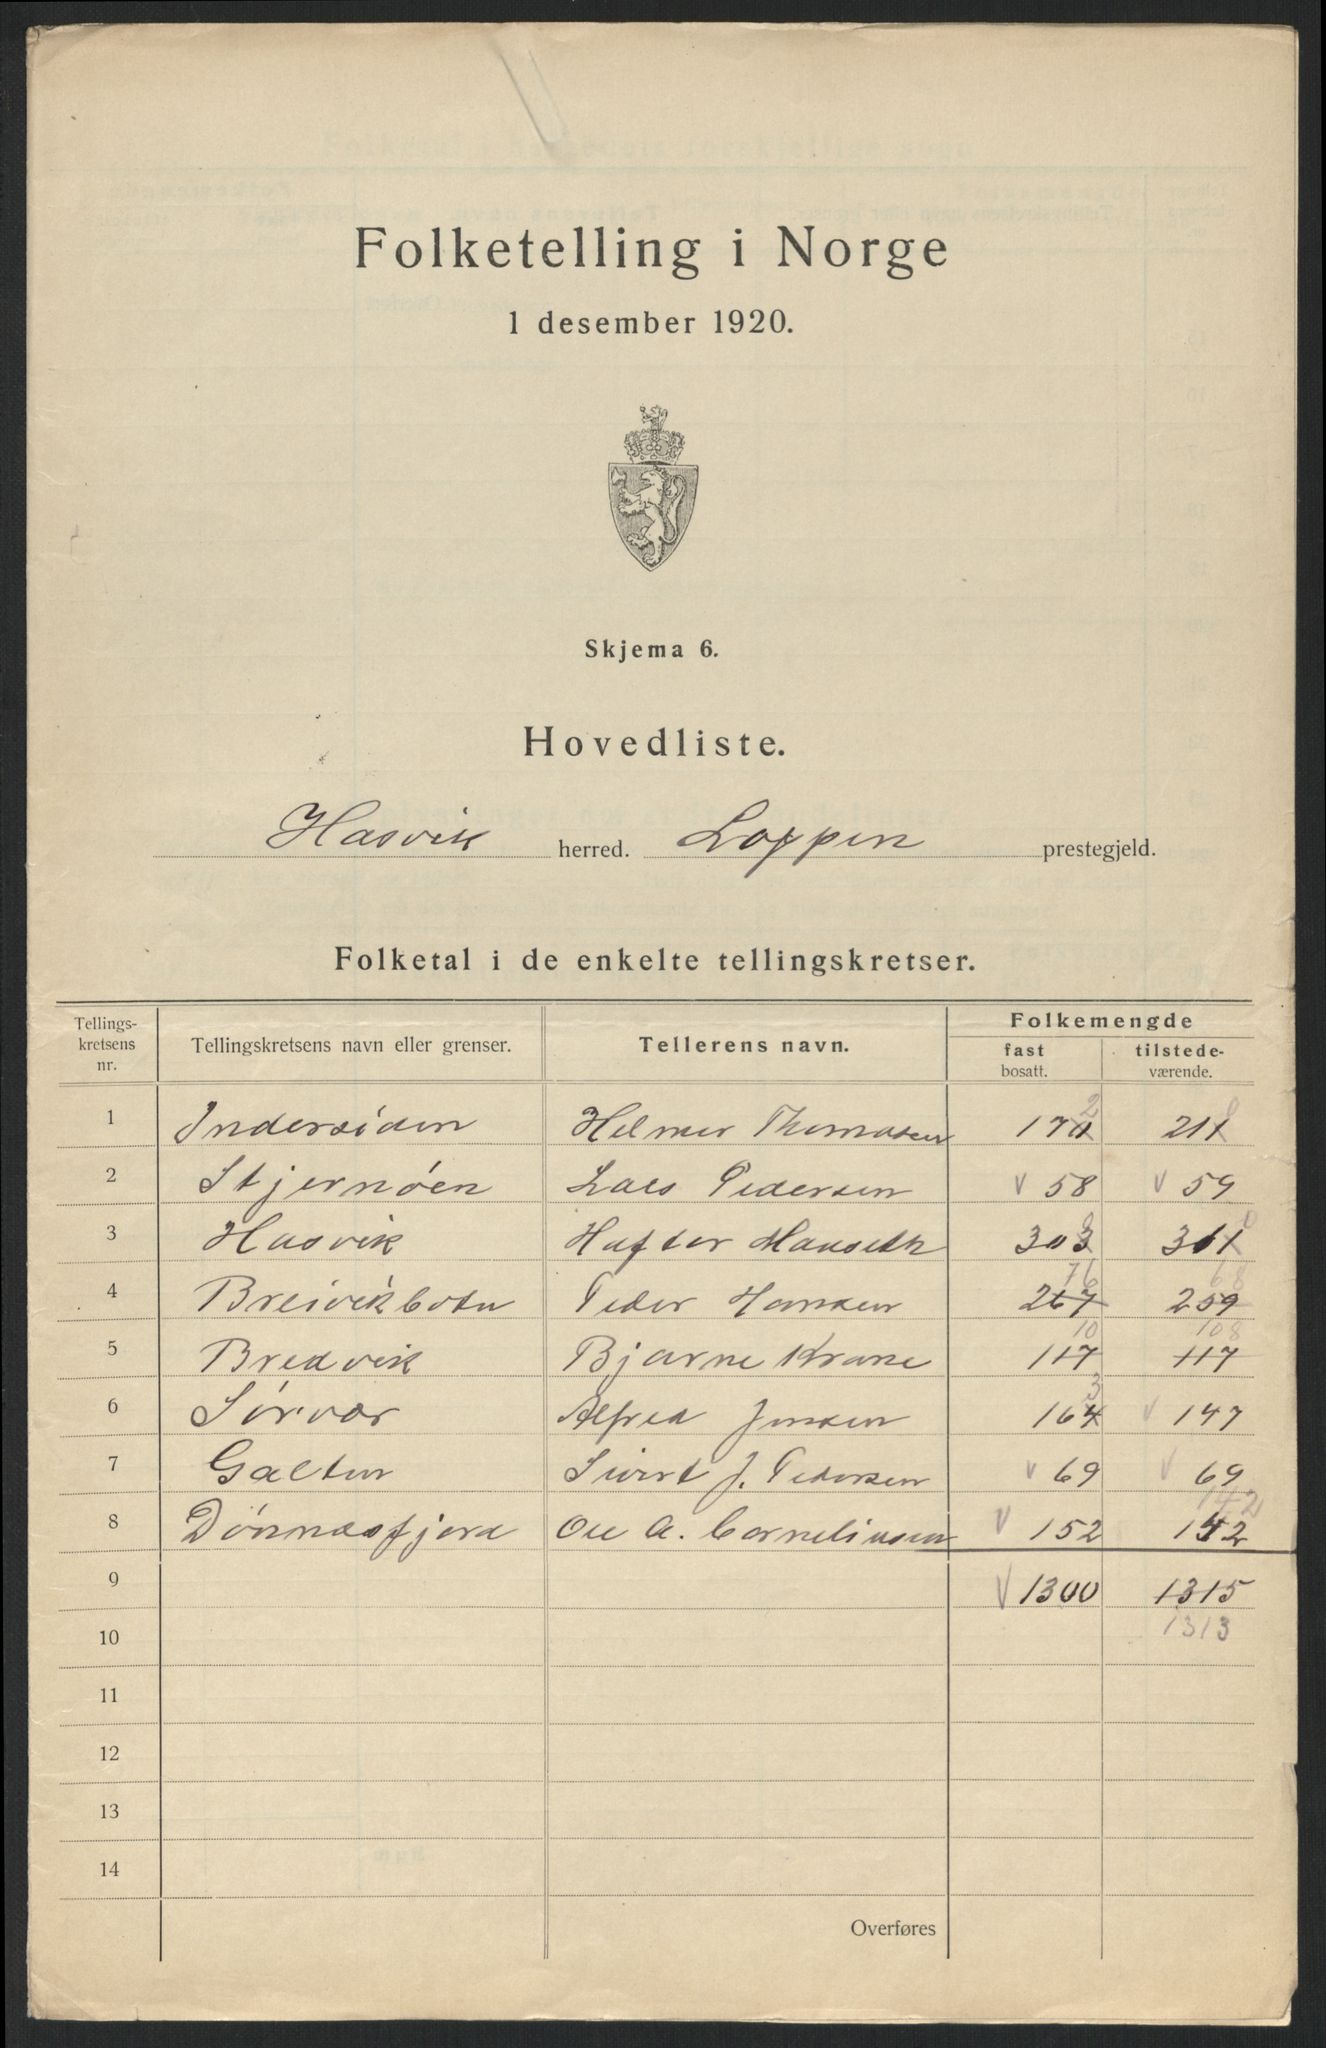 Folketelling i Norge
1 desember 1920.
Skjema 6.
Hovedliste.
Hasvik herred. Loppen prestegjeld.
Folketal i de enkelte tellingskretser.
Tellings-kretsens nr. Tellingskretsens navn eller grenser. Tellerens navn. Folkemengde
fast bosatt. tilstede-værende.
1 Indersiden Helmer Thomasen 170 2 211 0
2 Stjernöen Lars Pedersen v 58 v 59
3 Hasvik Hafter Mauseth 303 301 0
4 Breivikbotn Peder Hansen 267 76 259 68
5 Bredvik Bjarne Krane 117 10 117 108
6 Sörvær Alfred Jensen 164 3 v 147
7 Galten Sivert J. Pedersen v 69 v 69
8 Dönnesfjord Ole A. Corneliussen v 152 152 142
9 v 1300 1315
10 1313
11
12
13
14
Overføres